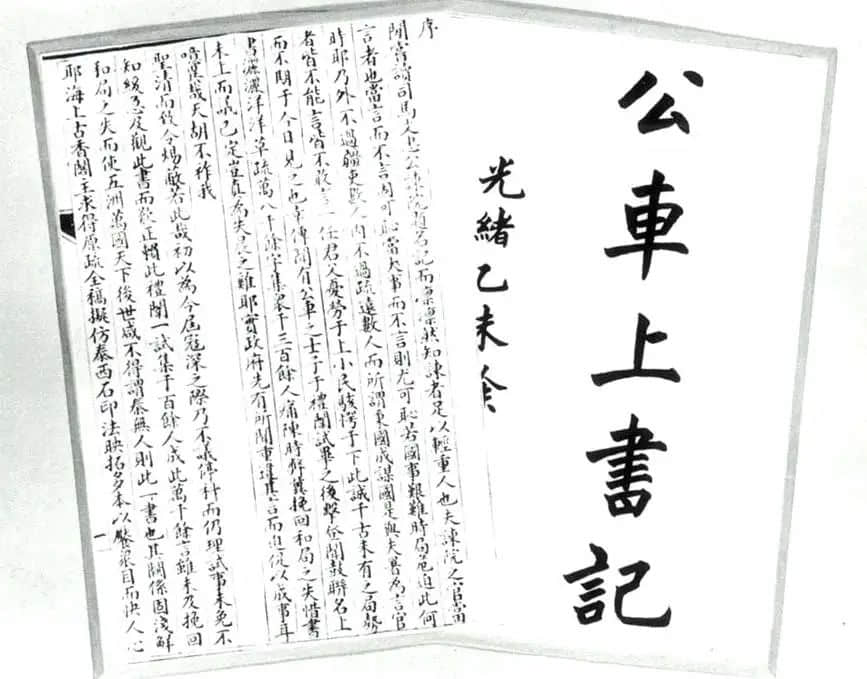 公車上書記
光緒乙未
序
聞嘗讀司馬文忠公諫院題名記而懍懍然知諫者足以輕重人也夫諫院之官當
言者也當言而不言固可恥當大事而不言則尤可恥若國事艱難時局危迫此何
時耶乃外不過疆吏數人內不過疏遠數人而所謂東國成謀國是與夫署為言官
者皆不能言皆不敢言一任君父憂勞于上小民駭愕于下此誠千古未有之局勢
而不期于今日見之也幸傳聞有公車之士子于禮闈試畢之後擊登聞鼓聯名上
書灑灑洋洋草疏萬八千餘字集眾千三百餘人痛陳時弊冀挽回和局之失惜書
未上而議已定豈真為失晨之雞耶實政府先有所聞重違其言而迫促以成事耳
噫哉天胡不祚我
聖清而致令若此哉初以為今屆寇深之際乃不議停科而仍理試事未免不
知緩急及觀此書而歎正賴此禮闈一試集千百餘人成此萬千餘言雖未及挽回
和局之失而使五洲萬國天下後世咸不得謂秦無人則此一書也其關係固淺鮮
耶海上古香閣主求得原疏全稿擬仿泰西石印法映拓多本以饜眾目而快人心
一